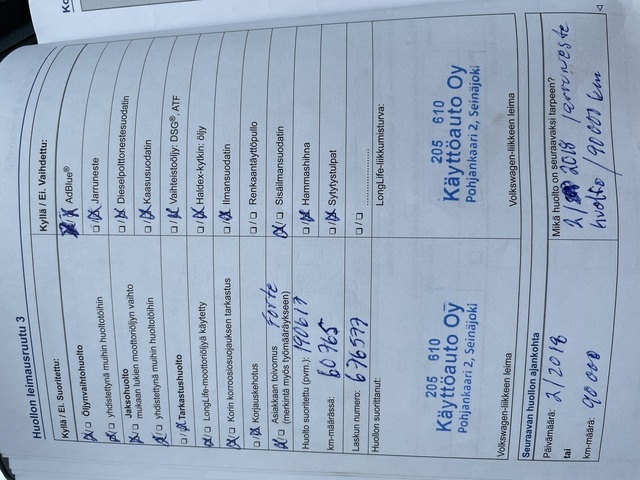 Huollon leimausruutu 3
Kyllä / Ei. Suoritettu:
Öljynvaihtohuolto
yhdistettynä muihin huoltotöihin
Jaksohuolto
mukaan lukien moottoriöljyn vaihto
yhdistettynä muihin huoltotöihin
Tarkastushuolto
LongLife-moottoriöljyä käytetty
Korin korroosiosuojauksen tarkastus
Korjauskehotus
Asiakkaan toivomus Forte
(merkintä myös työmääräykseen)
Huolto suoritettu (pvm.): 190617
km-määrässä: 60765
Laskun numero: 676577
Huollon suorittanut:
205 610
Käyttöauto Oy
Pohjankaari 2, Seinäjoki
Volkswagen-liikkeen leima
Kyllä / Ei. Vaihdettu:
AdBlue®
Jarruneste
Dieselpolttonestesuodatin
Kaasusuodatin
Vaihteistoöljy: DSG®, ATF
Haldex-kytkin: öljy
Ilmansuodatin
Renkaantäyttöpullo
Sisäilmansuodatin
Hammashihna
Sytytystulpat
LongLife-liikkumisturva:
205 610
Käyttöauto Oy
Pohjankaari 2, Seinäjoki
Volkswagen-liikkeen leima
Seuraavan huollon ajankohta
Päivämäärä: 2/2018
tai
km-määrä: 90000
Mikä huolto on seuraavaksi tarpeen?
2/ 2018 Jarruneste
huolto / 90000 km